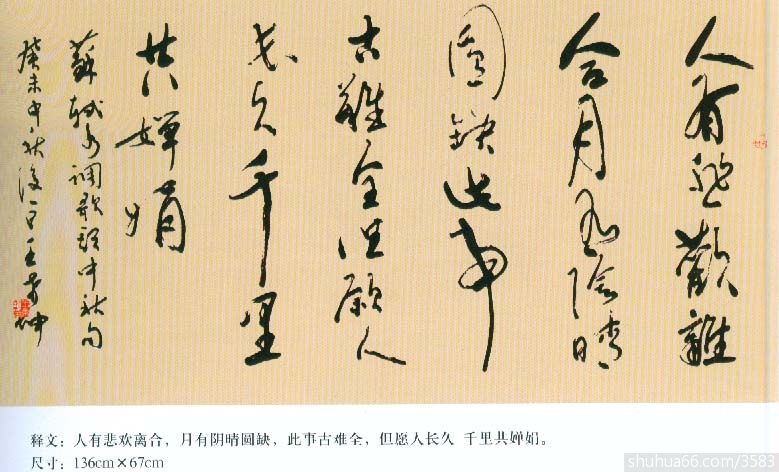 人有悲歡離
合月有陰晴
圓缺此事
古難全但願人
長久千里
共嬋娟
蘇軾水調歌頭中秋句
癸未中秋後一日王學仲
释文：人有悲欢离合，月有阴晴圆缺，此事古难全，但愿人长久 千里共婵娟。
尺寸：136cm×67cm
shuhua66.com/3583